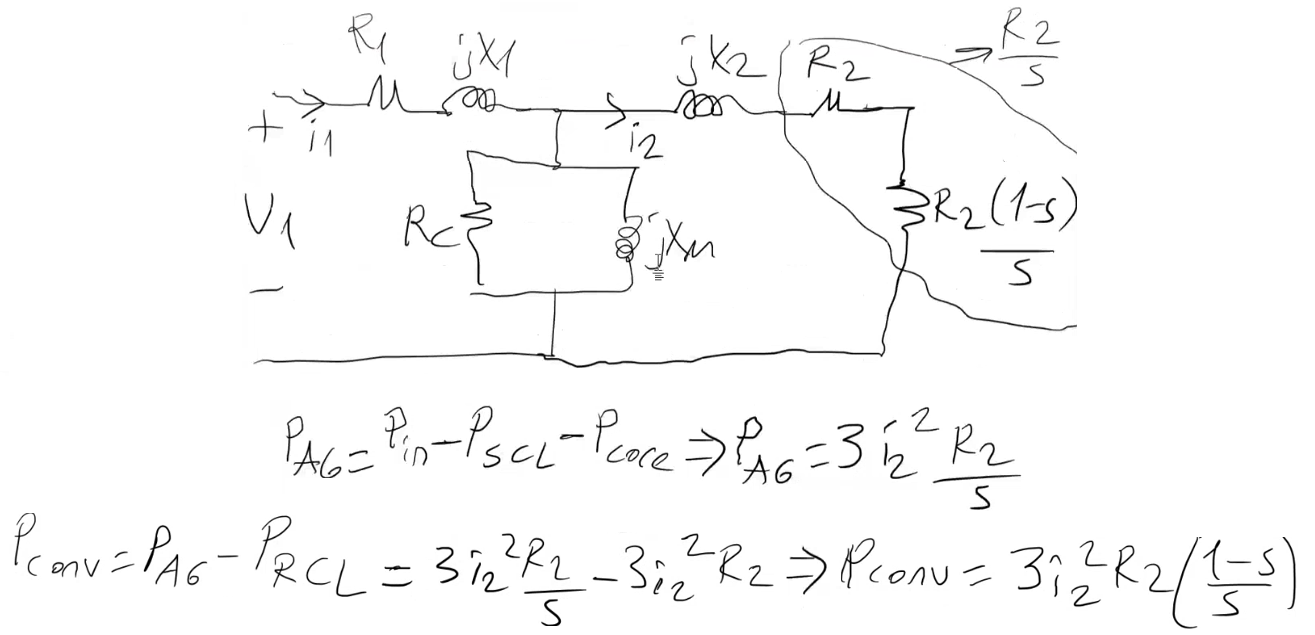 R1 jX1 jX2 R2 R2/s
+ i1 i2
V1 Rc jXm R2(1-s)/s
-
PAG = Pin - PSCL - Pcore ⇒ PAG = 3 i2² R2/s
Pconv = PAG - PRCL = 3i2² R2/s - 3i2² R2 ⇒ Pconv = 3i2² R2 (1-s/s)